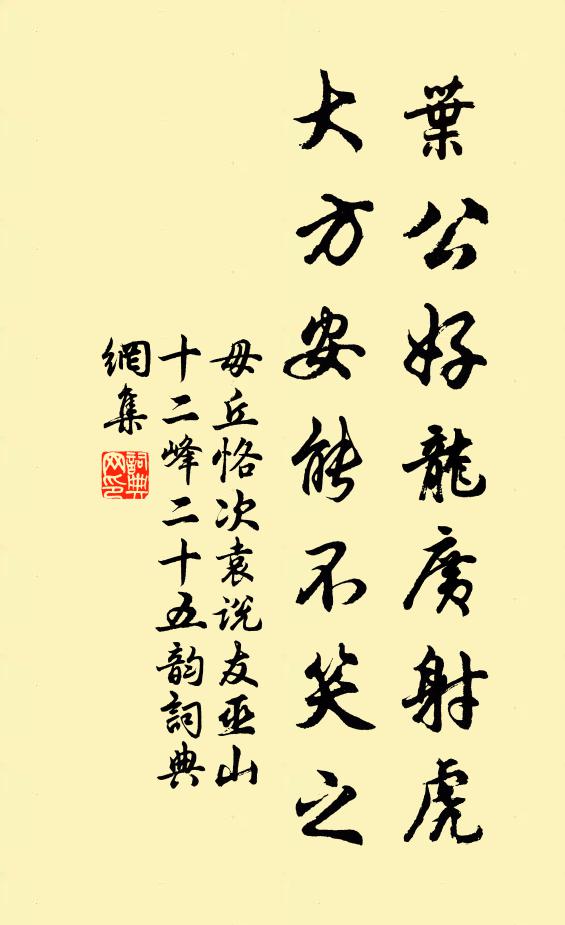 葉公好龍廣射虎
大方安能不笑之
毋丘恪次袁说友巫山
十二峰二十五韵詞典
網集
詞典網印